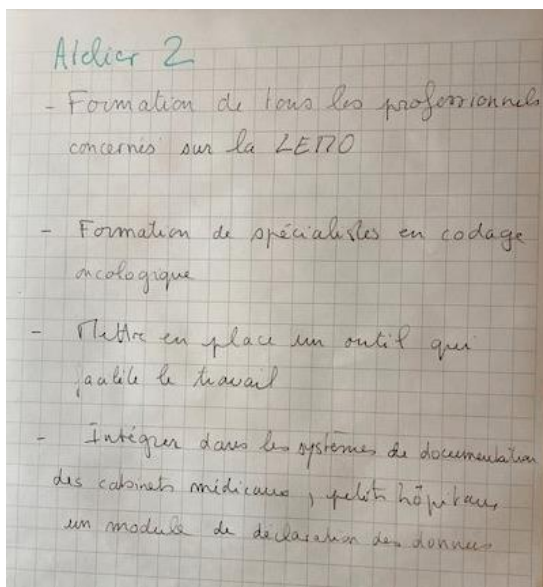 Atelier 2
- Formation de tous les professionnels
concernés sur la LEMO
- Formation de spécialistes en codage
oncologique
- Mettre en place un outil qui
facilite le travail
- Intégrer dans les systèmes de documentation
des cabinets médicaux, petits hôpitaux,
un module de déclaration des données